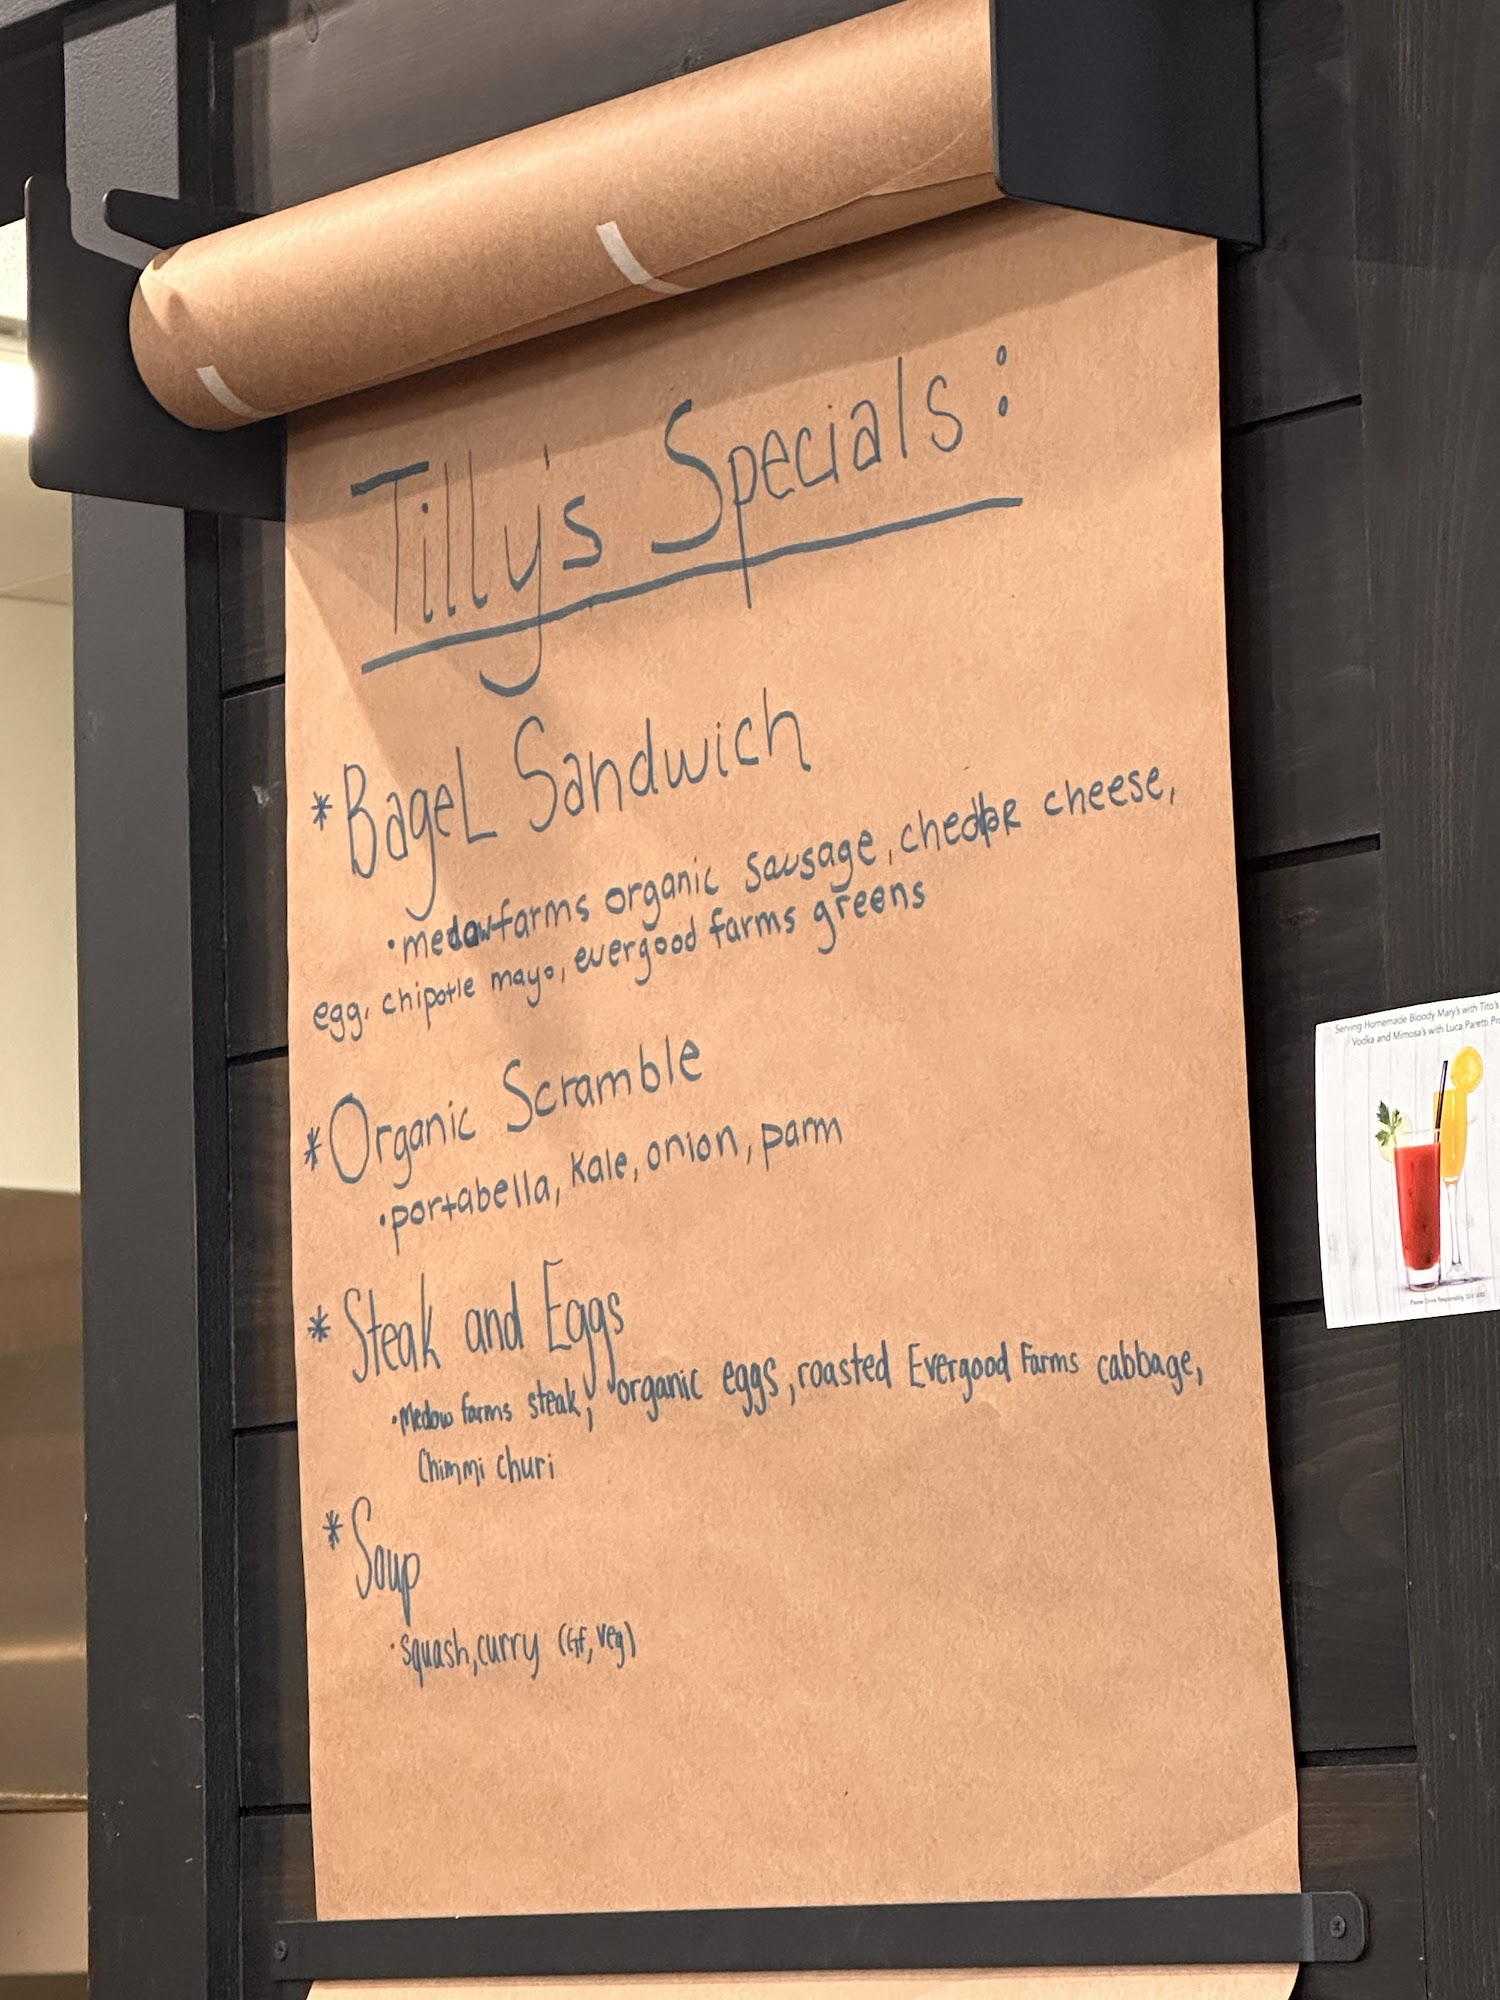 Tilly's Specials:
* Bagel Sandwich
• medow farms organic sausage, cheddar cheese,
egg, chipotle mayo, evergood farms greens
* Organic Scramble
• portabella, kale, onion, parm
* Steak and Eggs
• Medow farms steak, organic eggs, roasted Evergood Farms cabbage,
Chimmi churi
* Soup
• squash, curry (GF, veg)
Serving Homemade Bloody Mary's with Tito's
Vodka and Mimosa's with Luca Paretti Pro
Please Drink Responsibly